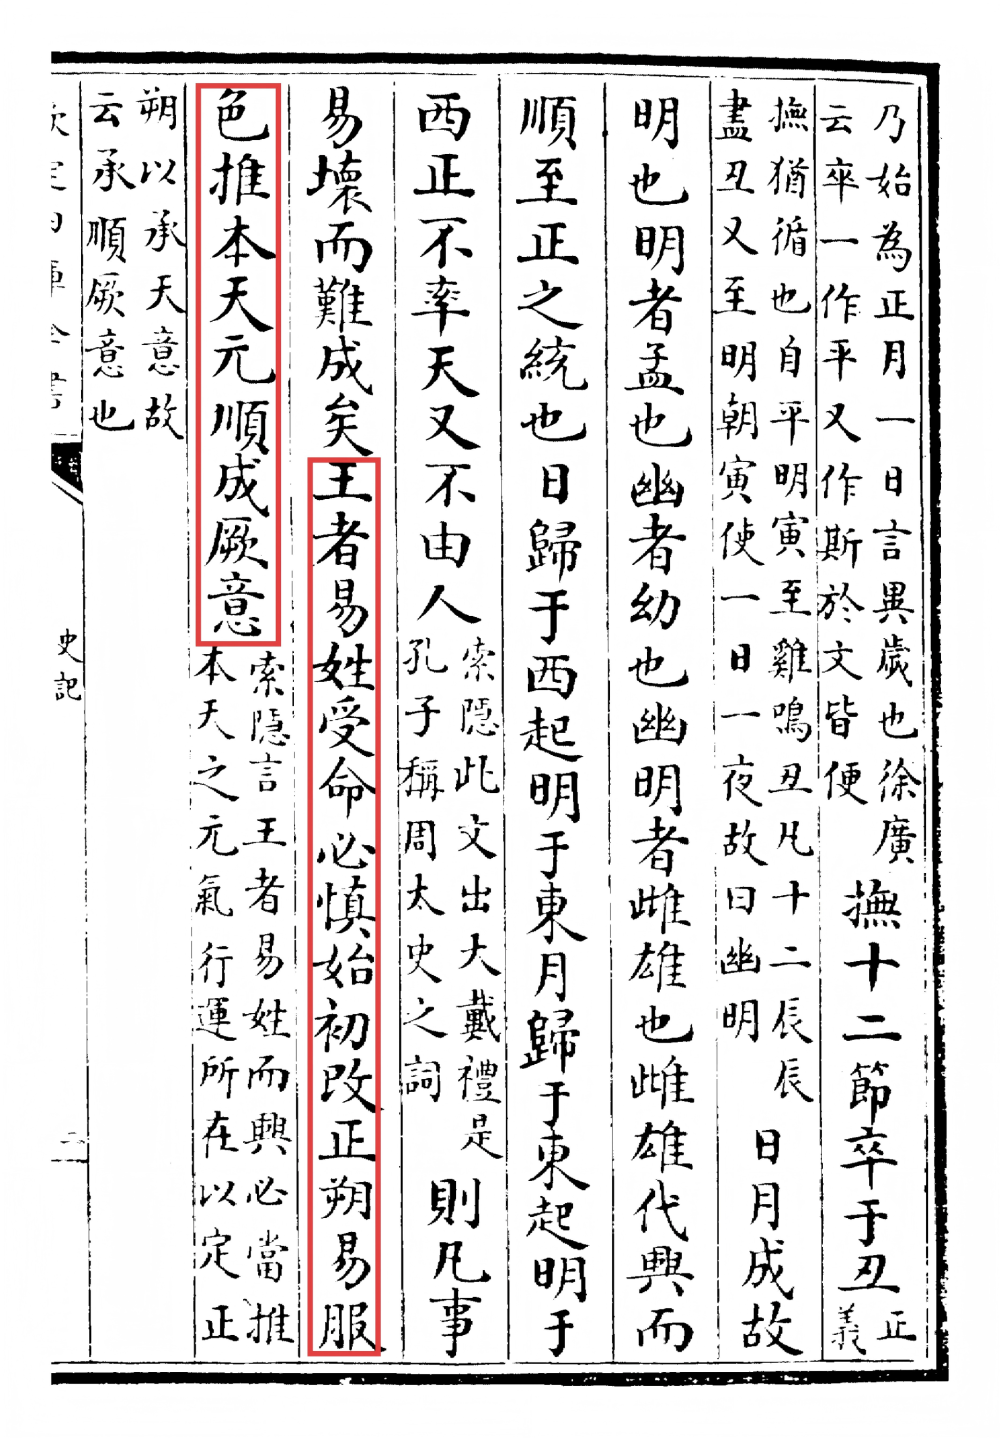 乃始為正月一日言異歲也徐廣
云卒一作平又作斯於文皆便
撫十二節卒于丑
正
義
撫猶循也自平明寅至雞鳴丑凡十二辰辰
盡丑又至明朝寅使一日一夜故曰幽明
日月成故
明也明者孟也幽者幼也幽明者雌雄也雌雄代興而
順至正之統也日歸于西起明于東月歸于東起明于
西正不率天又不由人
索隱此文出大戴禮是
孔子稱周太史之詞
則凡事
易壞而難成矣王者易姓受命必慎始初改正朔易服
色推本天元順成厥意
索隱言王者易姓而興必當推
本天之元氣行運所在以定正
朔以承天意故
云承順厥意也
史記